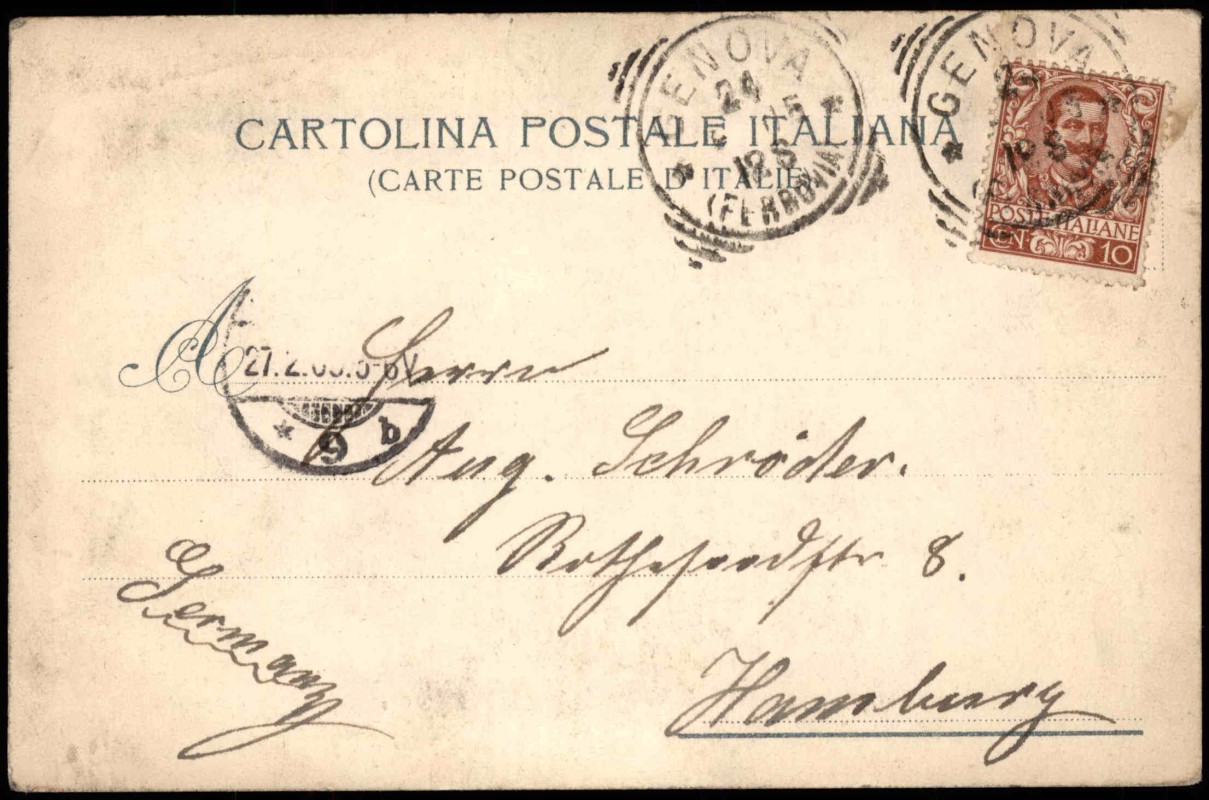 CARTOLINA POSTALE ITALIANA
(CARTE POSTALE D'ITALIE
GENOVA
24
15
(FERROVIA)
GENOVA
POSTE ITALIANE
CN 10
A
27.2.
5-6V
* 9 b
Herrn
Aug. Schröder.
8.
Hamburg
Germany